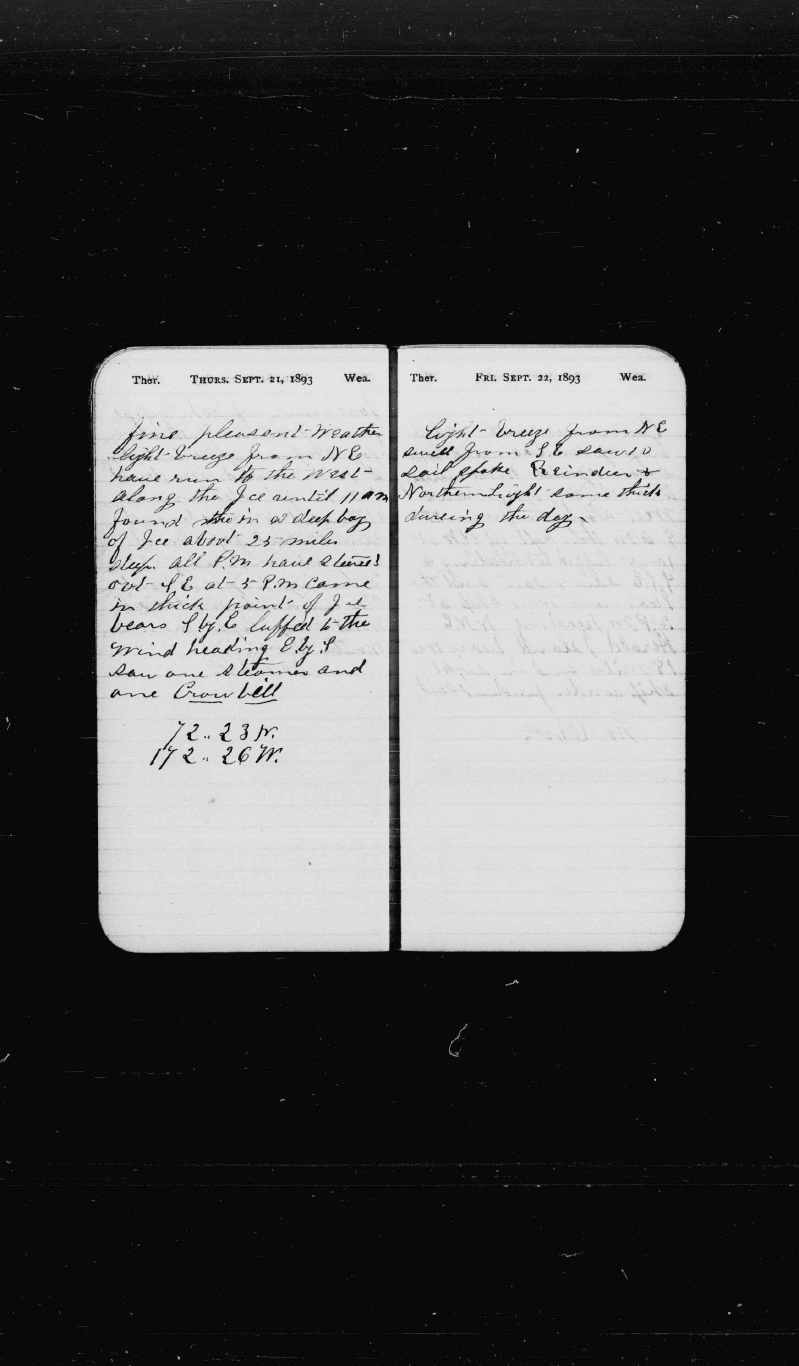 Ther. THURS. SEPT. 21, 1893 Wea.
fine pleasent weather
light breeze from N E
have run to the West
along the Ice until 11 am
found in a deep bay
of Ice about 25 miles
deep. all P.M have steered
out S E at 5 P.M came
in thick point of Ice
bears S by E luffed to the
Wind heading E by S
saw one steamer and
one Crow bell
72 .. 23 N.
172 .. 26 W.
Ther. FRI. SEPT. 22, 1893 Wea.
light breeze from N E
swell from S E saw 10
sail spoke Reindeer &
Northern Light some thick
during the day.